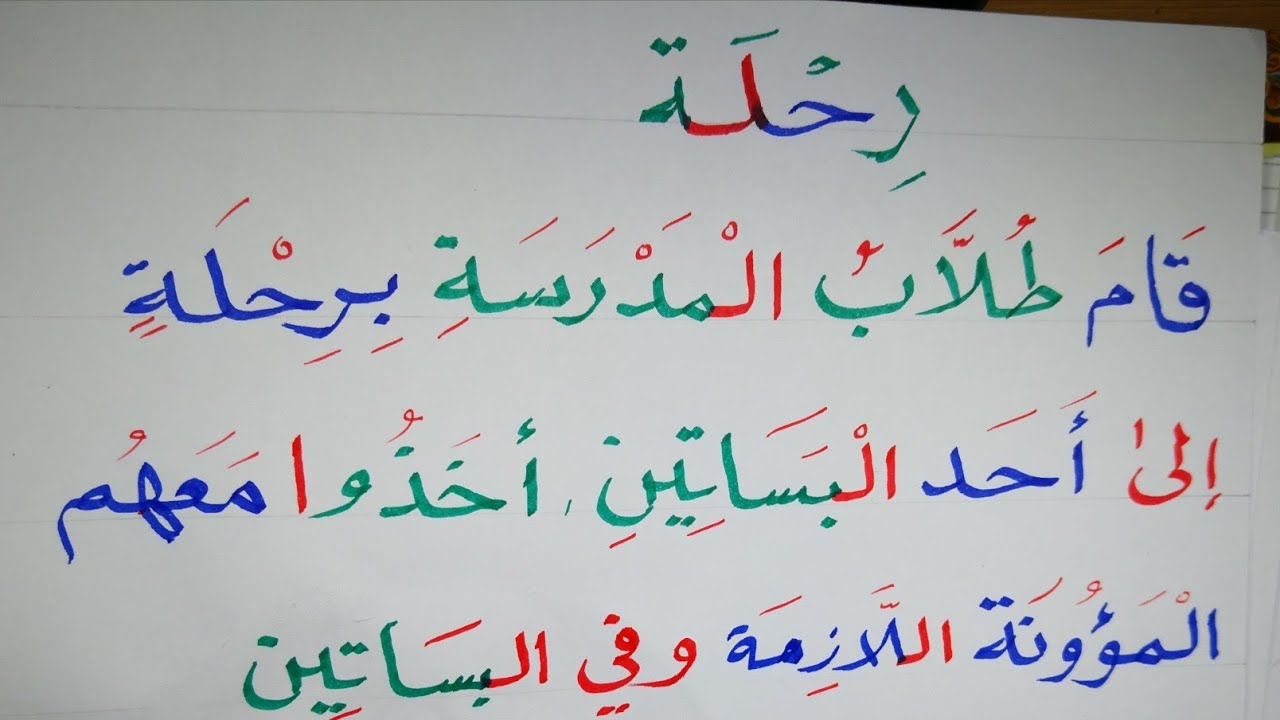 رِحْلَة
قَامَ طُلَّابُ الْمَدْرَسَةِ بِرِحْلَةٍ
إلىٰ أَحَد الْبَسَاتِينِ, أخَذُوا مَعَهُم
الْمَؤُونَة اللَّازِمَة وفي البسَاتِين